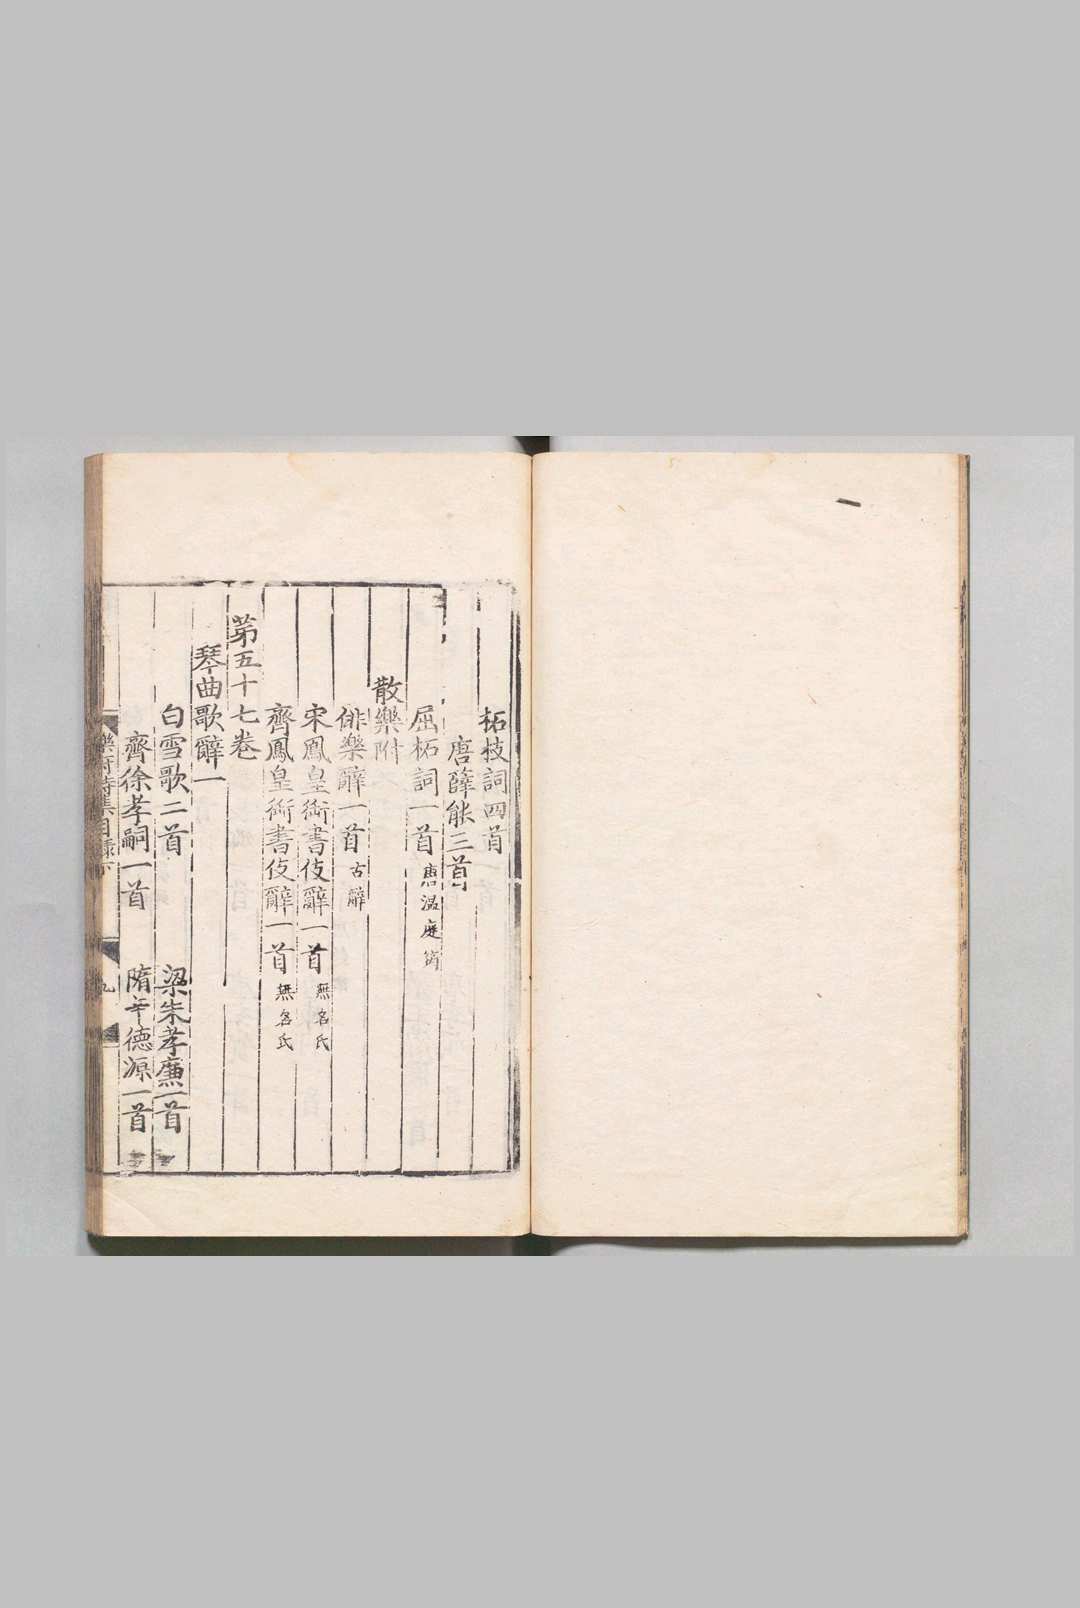 柘枝詞四首
唐薛能三首
屈柘詞一首 唐溫庭筠
散樂附
俳樂辭一首 古辭
宋鳳皇銜書伎辭一首 無名氏
齊鳳皇銜書伎辭一首 無名氏
第五十七卷
琴曲歌辭一
白雪歌二首 梁朱孝廉一首
齊徐孝嗣一首 隋辛德源一首
樂府詩集目錄下 九